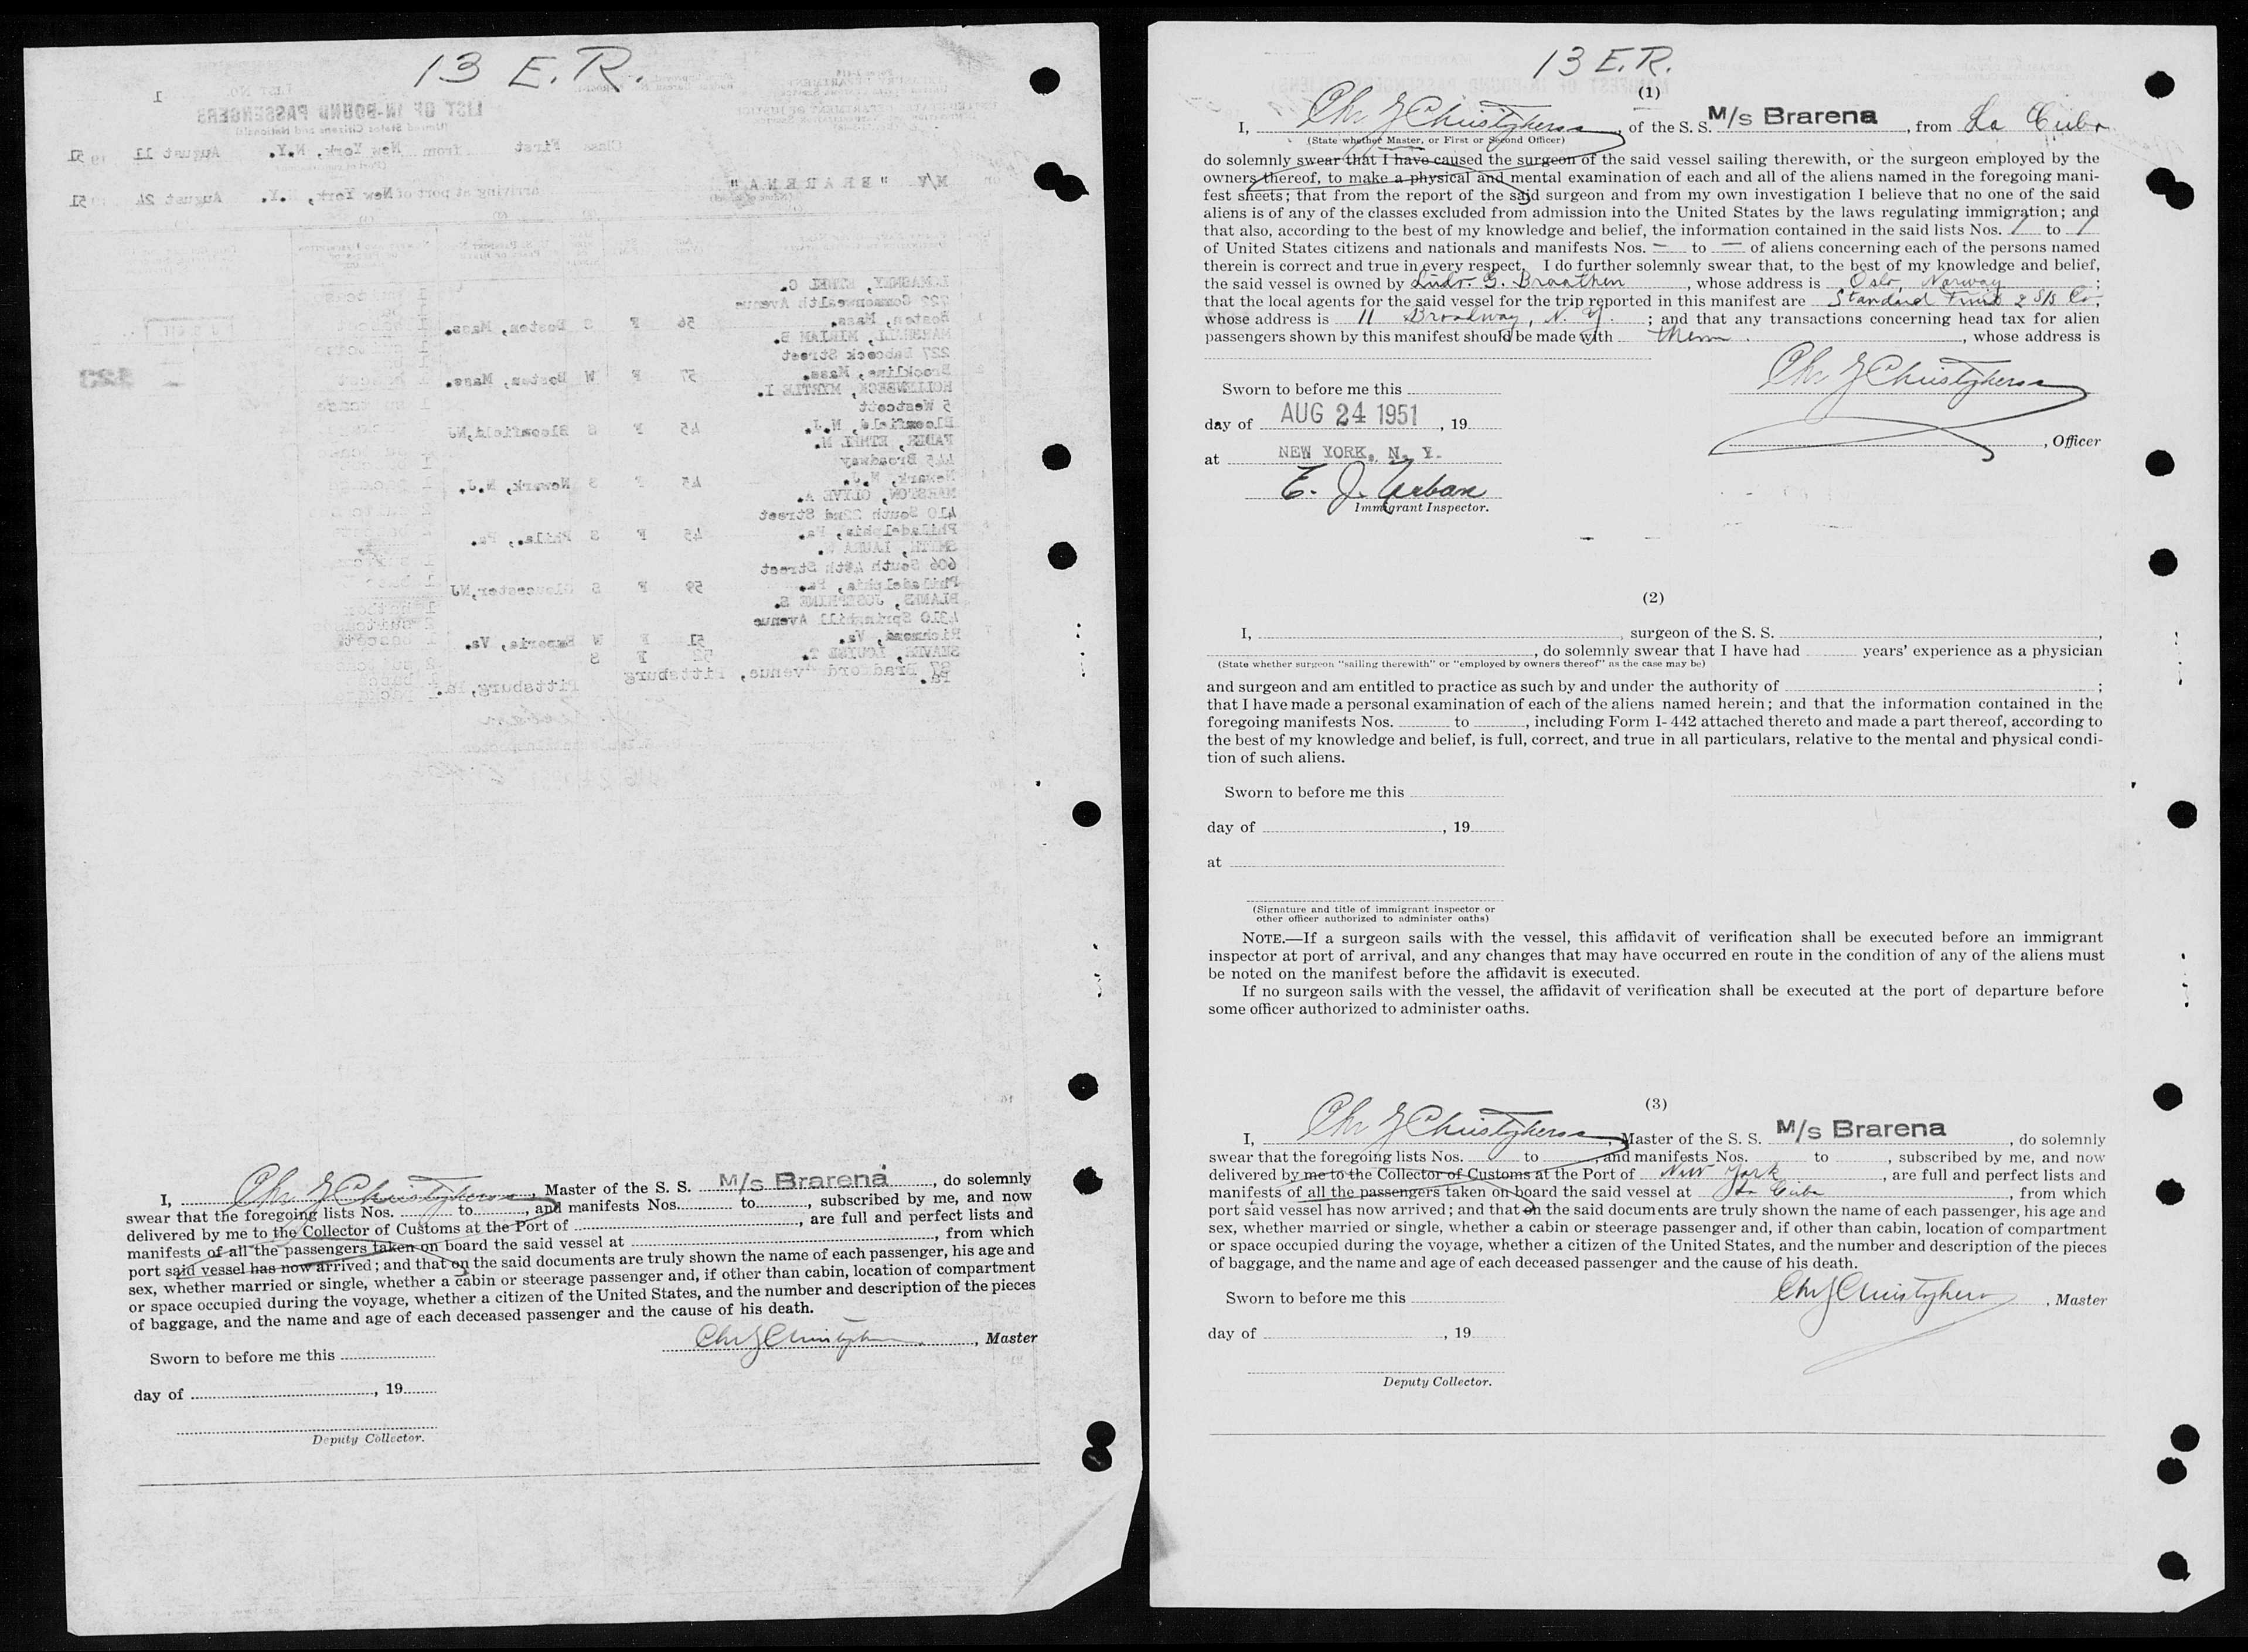 13 E.R.
LIST OF IN-BOUND PASSENGERS
(United States Citizens and Nationals)
Class First from New York, N.Y. August 11 1951
M/V "BRARENA" arriving at port of New York, N.Y. August 24 1951
56 F S Boston, Mass.
Boston, Mass.
MARSHALL, MIRIAM B.
227 Babcock Street
Brookline, Mass. 57 F W Boston, Mass.
HOLLENBECK, MYRTLE I.
5 Westcott
Bloomfield, N.J. 45 F S Bloomfield, NJ
445 Broadway
Newark, N.J. 45 F S Newark, N.J.
MARSTON, OLIVE A.
410 South 22nd Street
Philadelphia, Pa. 45 F S Phila., Pa.
606 South 48th Street
Philadelphia, Pa. 59 F S Gloucester, NJ
BLANKS, JOSEPHINE S.
4310 Springhill Avenue
Richmond, Va. 51 F W Emporia, Va.
87 Bradford Avenue, Pittsburg
Pa. Pittsburg, Pa.
I, Chr J Christophersen, Master of the S. S. M/s Brarena, do solemnly
swear that the foregoing lists Nos. to , and manifests Nos. to , subscribed by me, and now
delivered by me to the Collector of Customs at the Port of , are full and perfect lists and
manifests of all the passengers taken on board the said vessel at , from which
port said vessel has now arrived; and that on the said documents are truly shown the name of each passenger, his age and
sex, whether married or single, whether a cabin or steerage passenger and, if other than cabin, location of compartment
or space occupied during the voyage, whether a citizen of the United States, and the number and description of the pieces
of baggage, and the name and age of each deceased passenger and the cause of his death.
Chr J Christophersen, Master
Sworn to before me this
day of , 19
Deputy Collector.
13 E.R.
(1)
I, Chr J Christophersen, of the S. S. M/s Brarena, from La Ceiba
(State whether Master, or First or Second Officer)
do solemnly swear that I have caused the surgeon of the said vessel sailing therewith, or the surgeon employed by the
owners thereof, to make a physical and mental examination of each and all of the aliens named in the foregoing mani-
fest sheets; that from the report of the said surgeon and from my own investigation I believe that no one of the said
aliens is of any of the classes excluded from admission into the United States by the laws regulating immigration; and
that also, according to the best of my knowledge and belief, the information contained in the said lists Nos. 1 to 1
of United States citizens and nationals and manifests Nos. — to — of aliens concerning each of the persons named
therein is correct and true in every respect. I do further solemnly swear that, to the best of my knowledge and belief,
the said vessel is owned by Ludv. G. Braathen, whose address is Oslo, Norway;
that the local agents for the said vessel for the trip reported in this manifest are Standard Fruit & S/S Co,
whose address is 11 Broadway, N. Y.; and that any transactions concerning head tax for alien
passengers shown by this manifest should be made with them., whose address is
Sworn to before me this
Chr J Christophersen
day of AUG 24 1951, 19
, Officer
at NEW YORK, N. Y.
E. J. Urban
Immigrant Inspector.
(2)
I, , surgeon of the S. S. ,
, do solemnly swear that I have had years' experience as a physician
(State whether surgeon "sailing therewith" or "employed by owners thereof" as the case may be)
and surgeon and am entitled to practice as such by and under the authority of ;
that I have made a personal examination of each of the aliens named herein; and that the information contained in the
foregoing manifests Nos. to , including Form I-442 attached thereto and made a part thereof, according to
the best of my knowledge and belief, is full, correct, and true in all particulars, relative to the mental and physical condi-
tion of such aliens.
Sworn to before me this
day of , 19
at
(Signature and title of immigrant inspector or
other officer authorized to administer oaths)
NOTE.—If a surgeon sails with the vessel, this affidavit of verification shall be executed before an immigrant
inspector at port of arrival, and any changes that may have occurred en route in the condition of any of the aliens must
be noted on the manifest before the affidavit is executed.
If no surgeon sails with the vessel, the affidavit of verification shall be executed at the port of departure before
some officer authorized to administer oaths.
(3)
I, Chr J Christophersen, Master of the S. S. M/s Brarena, do solemnly
swear that the foregoing lists Nos. to , and manifests Nos. to , subscribed by me, and now
delivered by me to the Collector of Customs at the Port of New York, are full and perfect lists and
manifests of all the passengers taken on board the said vessel at La Ceiba, from which
port said vessel has now arrived; and that on the said documents are truly shown the name of each passenger, his age and
sex, whether married or single, whether a cabin or steerage passenger and, if other than cabin, location of compartment
or space occupied during the voyage, whether a citizen of the United States, and the number and description of the pieces
of baggage, and the name and age of each deceased passenger and the cause of his death.
Sworn to before me this
Chr J Christophersen, Master
day of , 19
Deputy Collector.